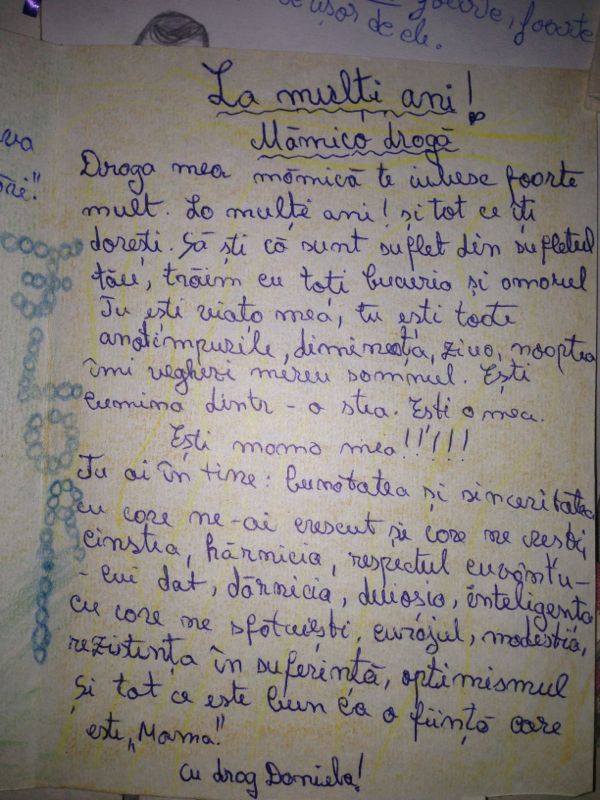 de ușor de ele.
foarte
va
tăi"
La mulți ani!
Mămico dragă
Draga mea mămică te iubesc foarte
mult. La mulți ani! și tot ce îți
dorești. Să ști că sunt suflet din sufletul
tău, trăim cu toți bucuria și amorul
Tu ești viața mea, tu ești toate
anotimpurile, dimineața, ziua, noaptea
îmi veghezi mereu somnul. Ești
lumina dintr-o stea. Ești a mea.
Ești mama mea!!!!!!
Tu ai în tine: bunătatea și sinceritatea
cu care ne-ai crescut și care ne crești,
cinstea, hărnicia, respectul cuvântu-
-lui dat, dărnicia, duioșia, inteligența
cu care ne sfătuiești, curajul, modestia,
rezistența în suferință, optimismul
și tot ce este bun la o ființă care
este „Mama."
cu drag Daniela!